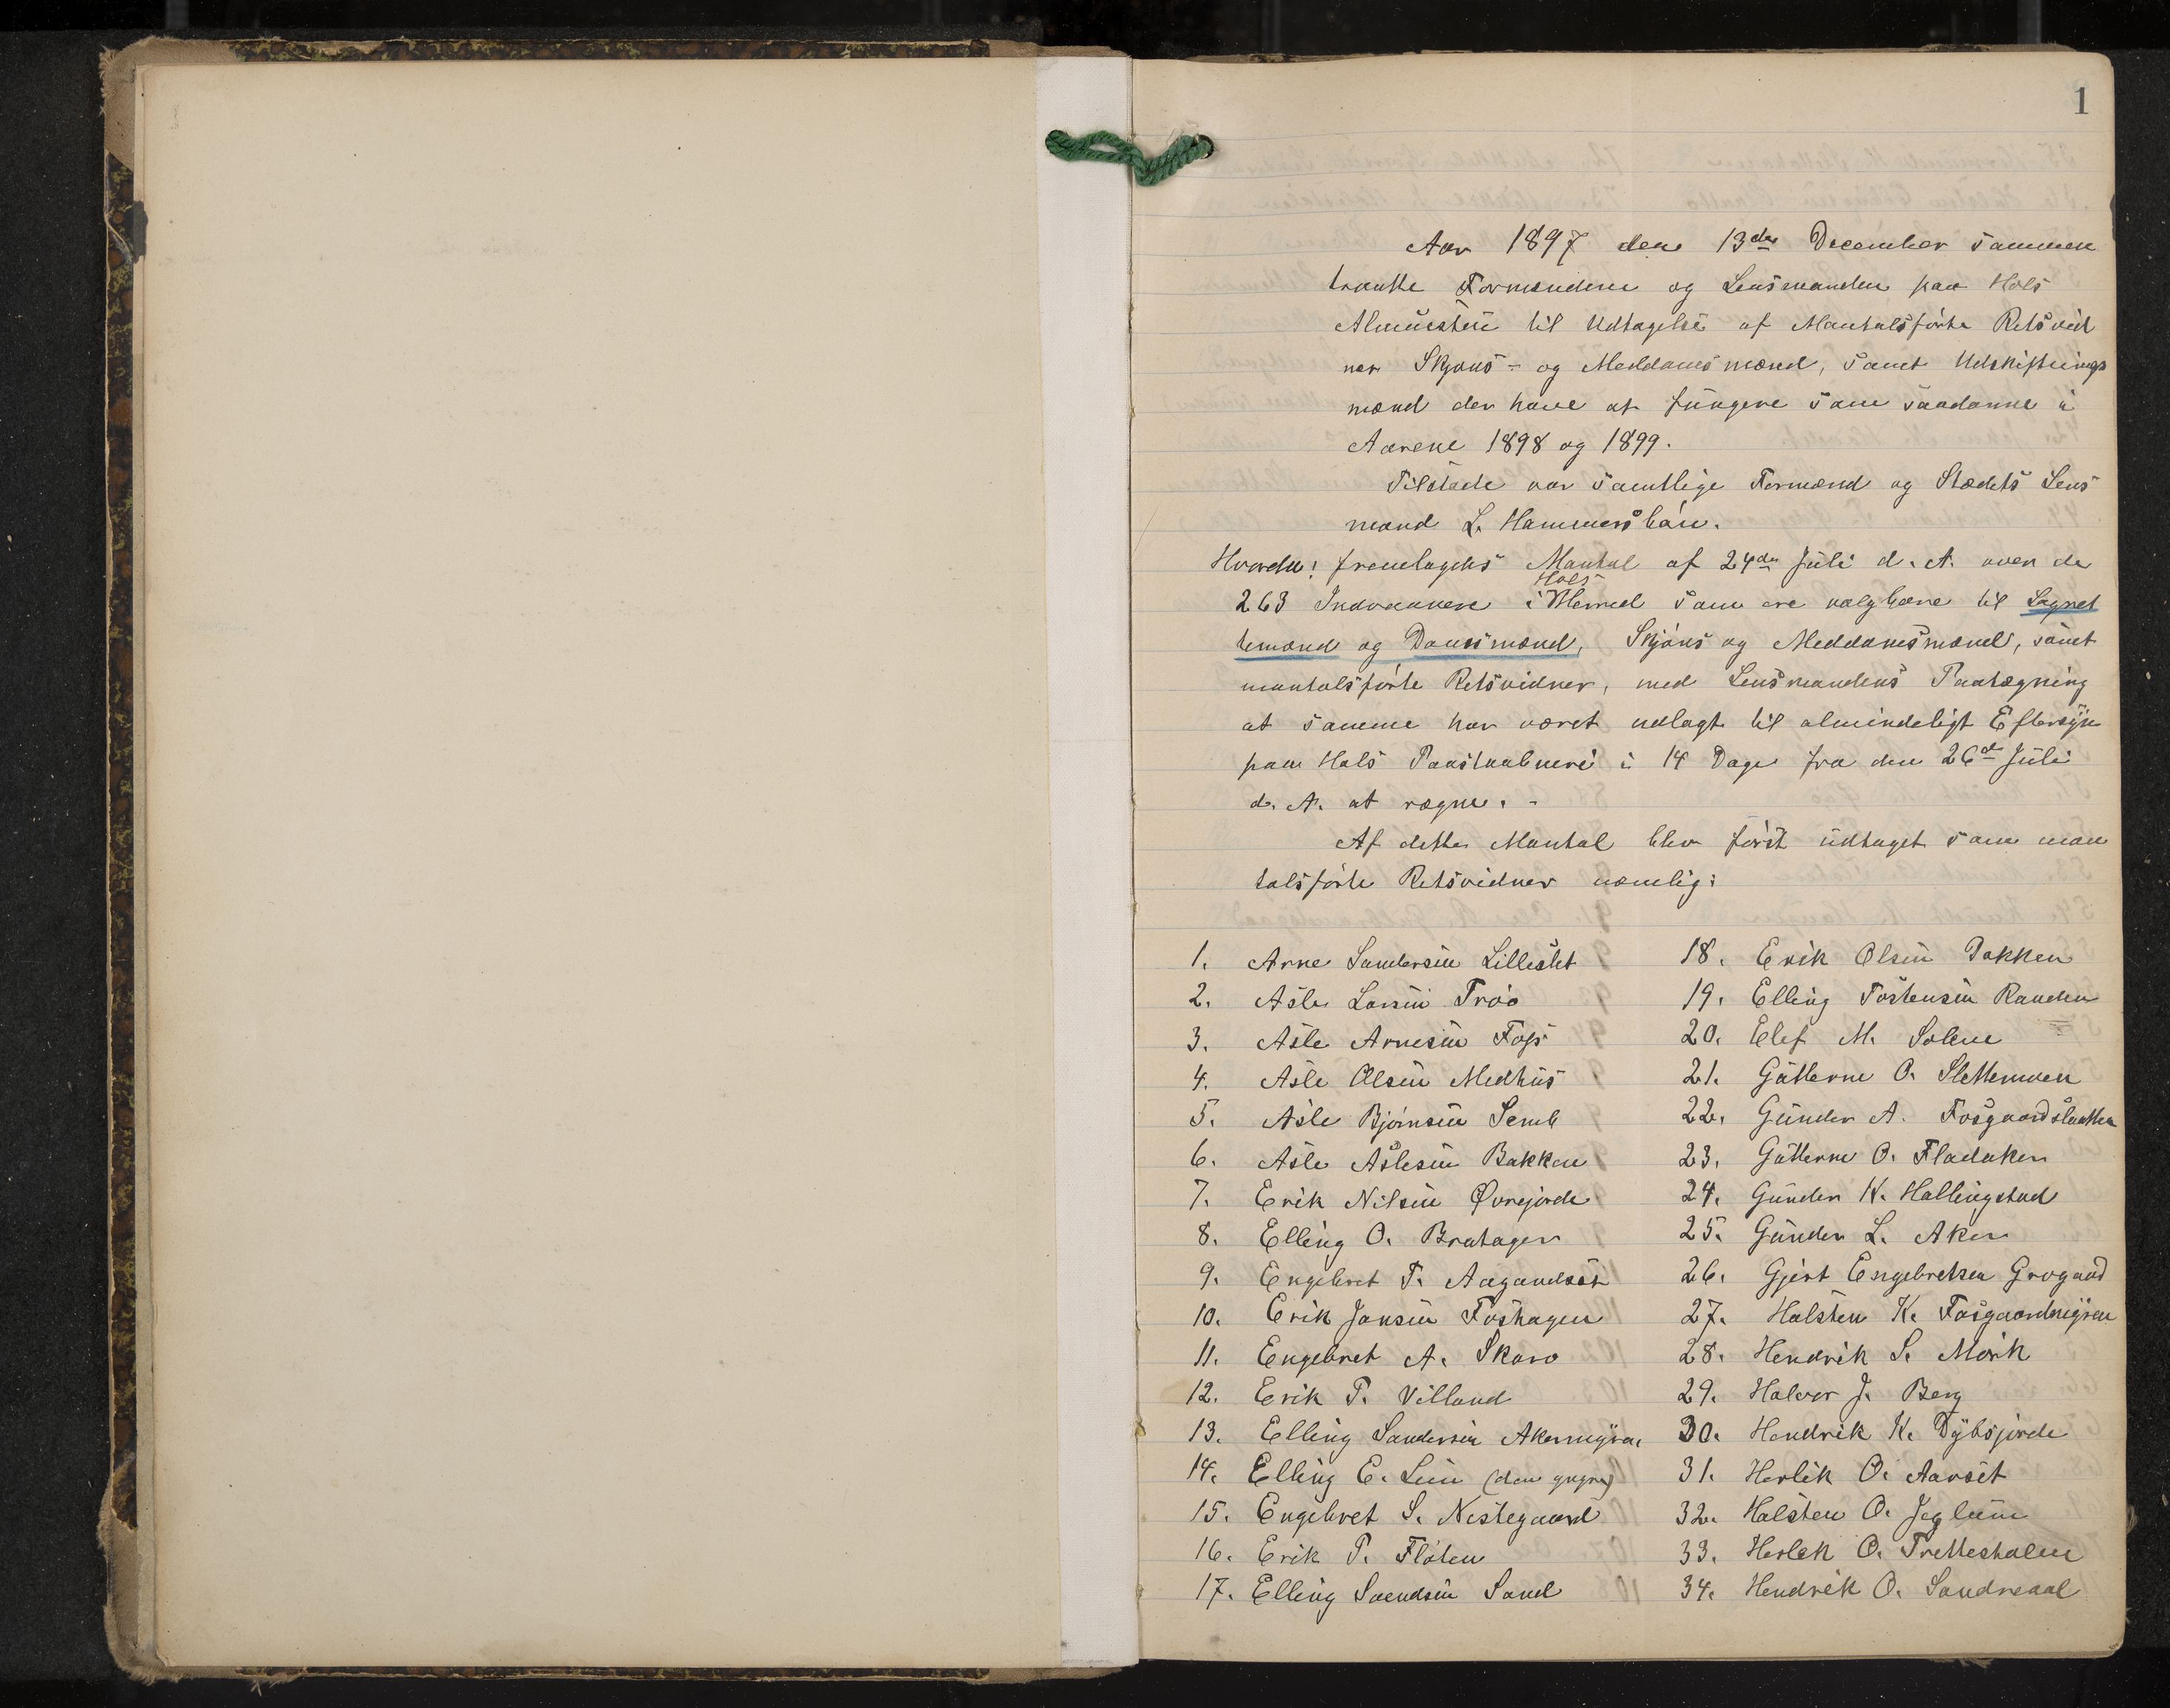 1
Aar 1897 den 13de December sammen
traatte Formændene og Lensmanden paa Hols
Almuestue til Udtagelse af Mantalsførte Retsvid
ner Skjøns- og Meddomsmænd, samt Udskiftnings
mænd der have at fungere som saadanne i
Aarene 1898 og 1899.
Tilstede var samtlige Formænd og Stedets Lens
mand L. Hammersbøn.
Hvorda: fremlagdes Mantal af 24de Juli d. A. over de
Hols
263 Indvaanere i Herred som ere valgbare til Lagret
temænd og Domsmænd, Skjøns og Meddomsmænd, samt
mantalsførte Retsvidner, med Lensmandens Paategning
at samme har været udlagt til almindeligt Eftersyn
paa Hols Poststaabneri i 14 Dage fra den 26de Juli
d. A. at regne. -
Af dette Mantal blev først udtaget som man
talsførte Retsvidner nemlig:
1. Arne Sandersen Lilleslet
2. Asle Larsen Trøo
3. Asle Arnesen Foss
4. Asle Olsen Medhus
5. Asle Bjørnsen Semb
6. Asle Aslesen Bakken
7. Erik Nilsen Øvrejorde
8. Elling O. Brathagen
9. Engebret T.
10. Erik Jonsen Foshagen
11. Engebret A. Skaro
12. Erik T. Villand
13. Elling Sandersen Akermyren
14. Elling E. Lein (den yngre)
15. Engebret S. Nestegaard
16. Erik P. Fløten
17. Elling Svendsen Sand
18. Erik Olsen Bakken
19. Elling Tostensen Randen
20. Elef M. Solem
21. Guttorm O. Slettemoen
22. Gunder A. Fosgaardslaatten
23. Guttorm O. Fladaker
24. Gunder K. Hallingstad
25. Gunder L. Aker
26. Gjert Engebretsen Grogaard
27. Halsten K. Fosgaardmyren
28. Hendrik S. Mørk
29. Halvor J. Berg
30. Hendrik K. Dybsjorde
31. Herlek O. Aarset
32. Halsten O. Jeglum
33. Herlek O. Tretteshalen
34. Hendrik O. Sandreaal